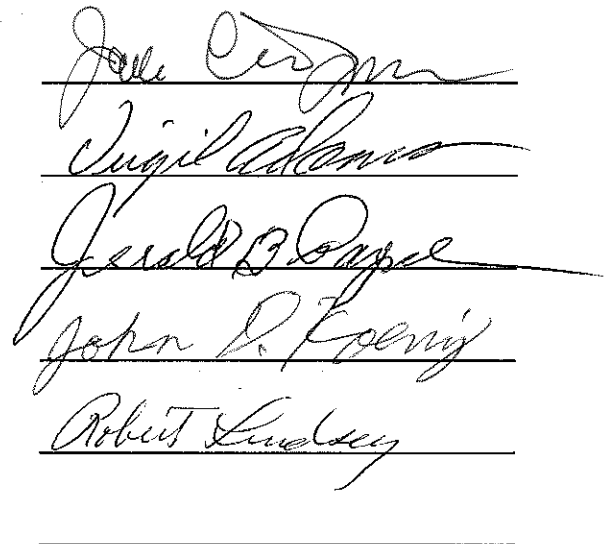 Virgil Adams
Gerald B
John D. Koenig
Robert Lindsey